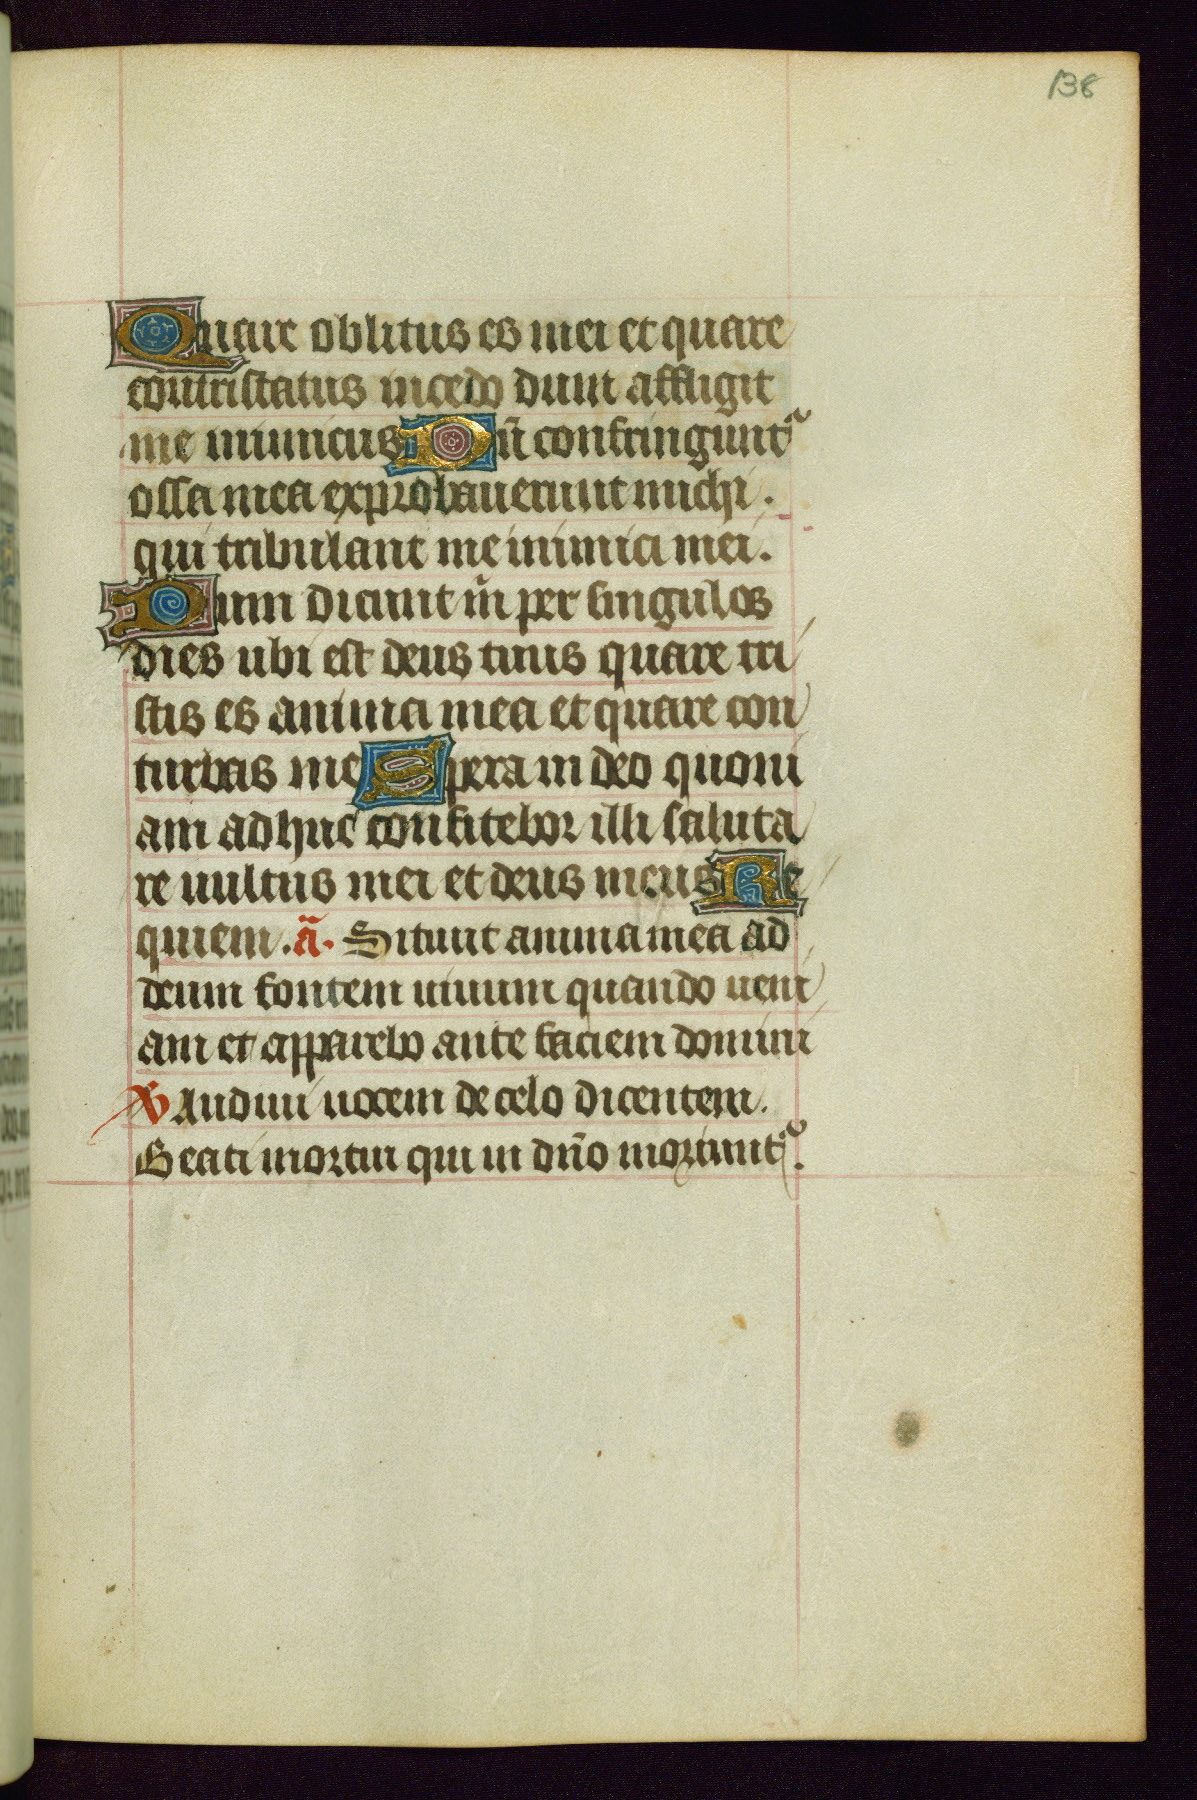 138
Quare oblitus es mei et quare
contristatus incedo dum affligit
me inimicus Dū confringunt᷑
ossa mea exprobauerunt michi .
qui tribulant me inimici mei.
Dum dicunt m̄ per singulos
dies ubi est deus tuus quare tri
stis es anima mea et quare con
turbas me Spera in deo quoni
am adhuc confitebor illi saluta
re uultus mei et deus meus Re
quiem . ā. Sitiuit anima mea ad
deum fontem uiuum quando ueni
am et apparebo ante faciem domini
℣ Audiui uocem de celo dicentem.
Beati mortui qui in dn̄o moriunt᷑.